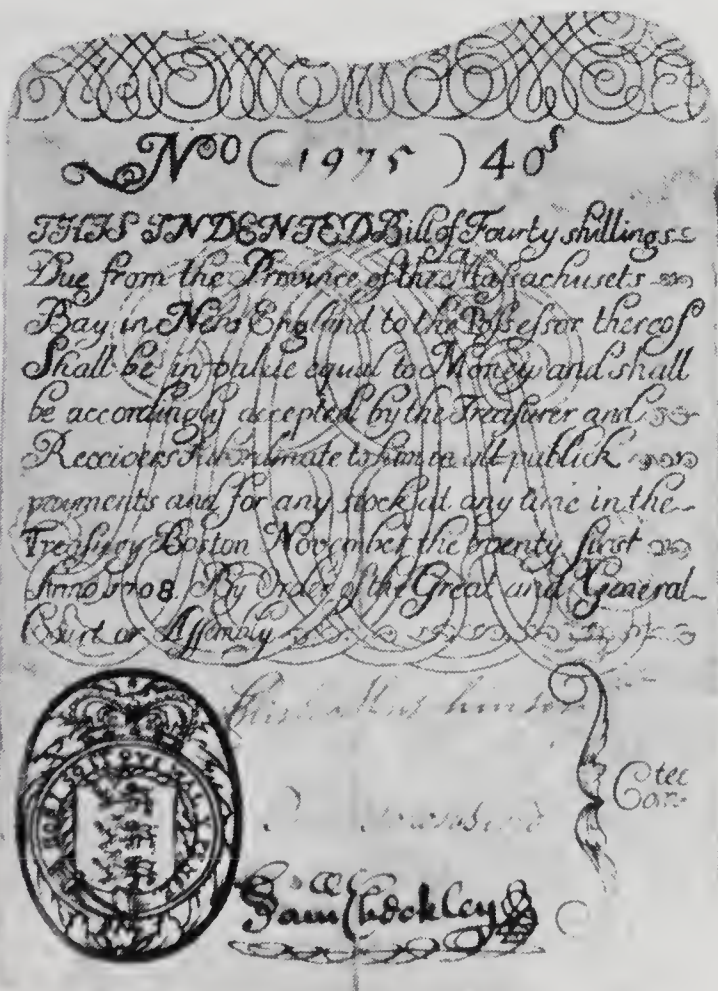 No (1975) 40s
THIS INDENTED Bill of Fourty shillings
Due from the Province of the Massachusets
Bay in New England to the Possessor thereof
Shall be in value equal to Money and shall
be accordingly accepted by the Treasurer and
Receivers subordinate to him in all publick
payments and for any stock at any time in the
Treasury Boston November the twenty first
Anno 1708. By Order of the Great and General
Court or Assembly
Townsend
Com tee
Sam Checkley
HONI SOIT QVI MAL Y PENSE